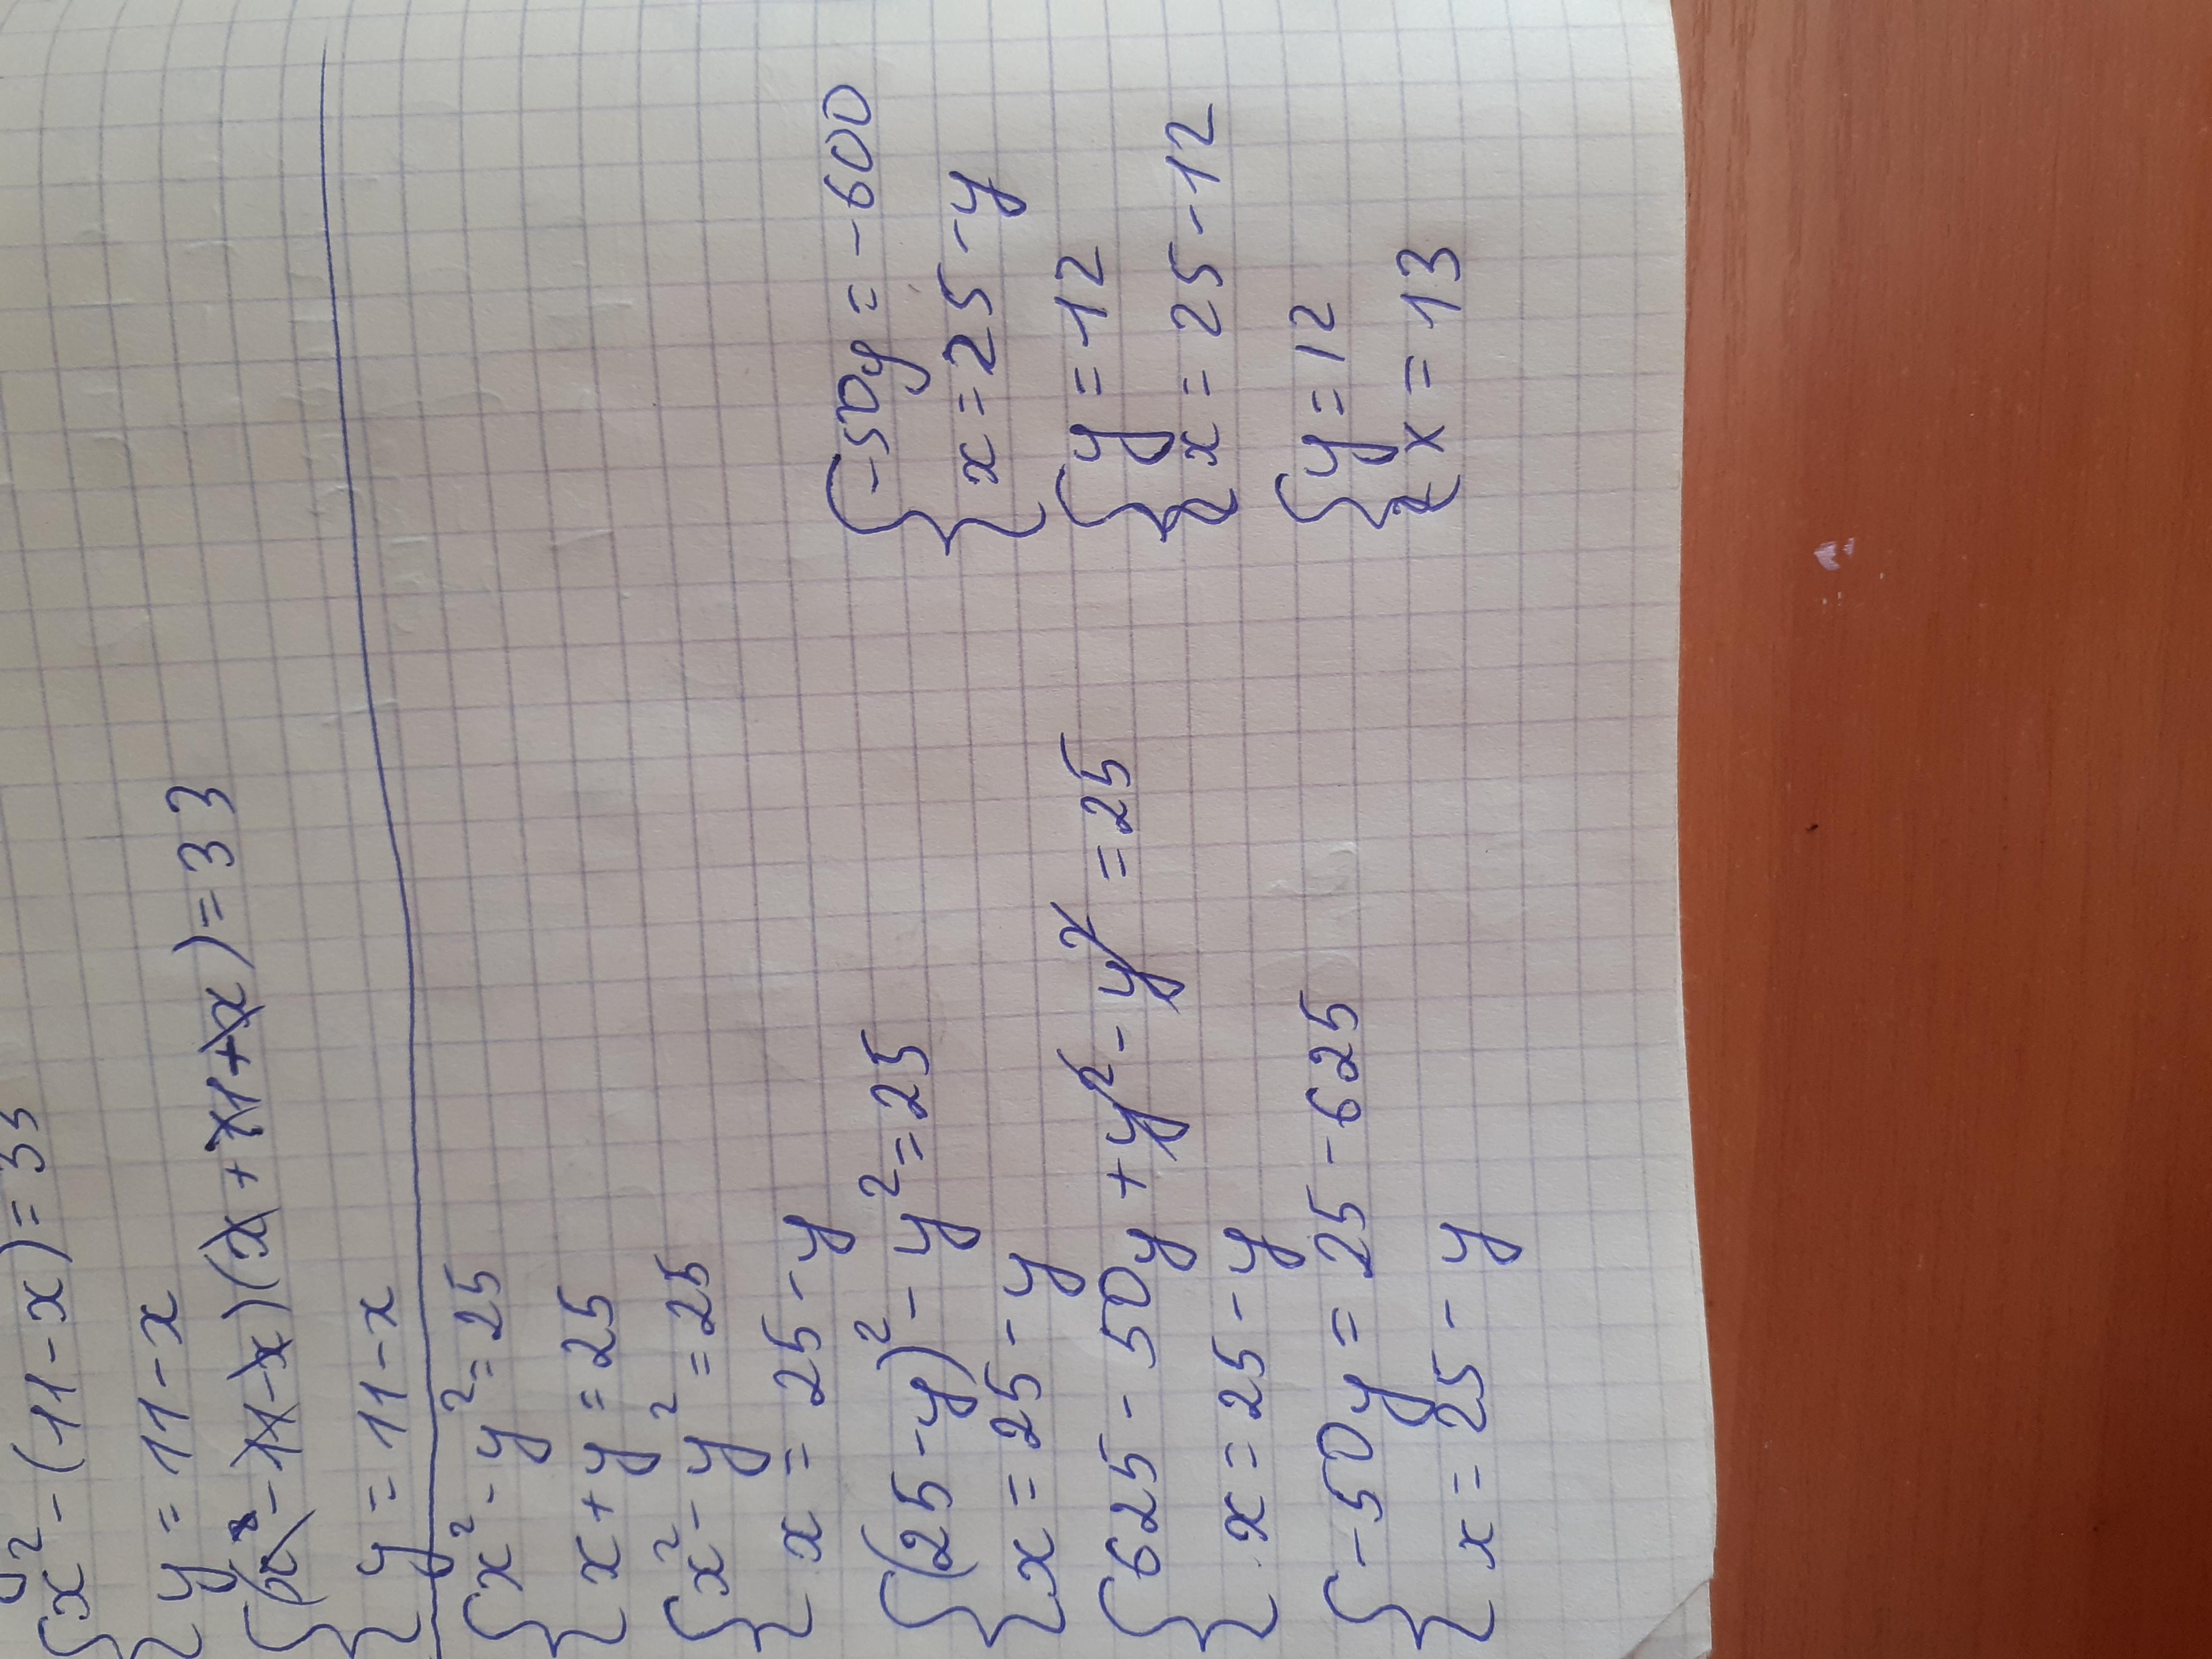 {x² - (11 - x) = 33
y = 11 - x
{(x² - 11 - x)(x + 11 + x) = 33
y = 11 - x
{x² - y² = 25
x + y = 25
{x² - y² = 25
x = 25 - y
{(25 - y)² - y² = 25
x = 25 - y
{625 - 50y + y² - y² = 25
x = 25 - y
{-50y = 25 - 625
x = 25 - y
{-50y = -600
x = 25 - y
{y = 12
x = 25 - 12
{y = 12
x = 13